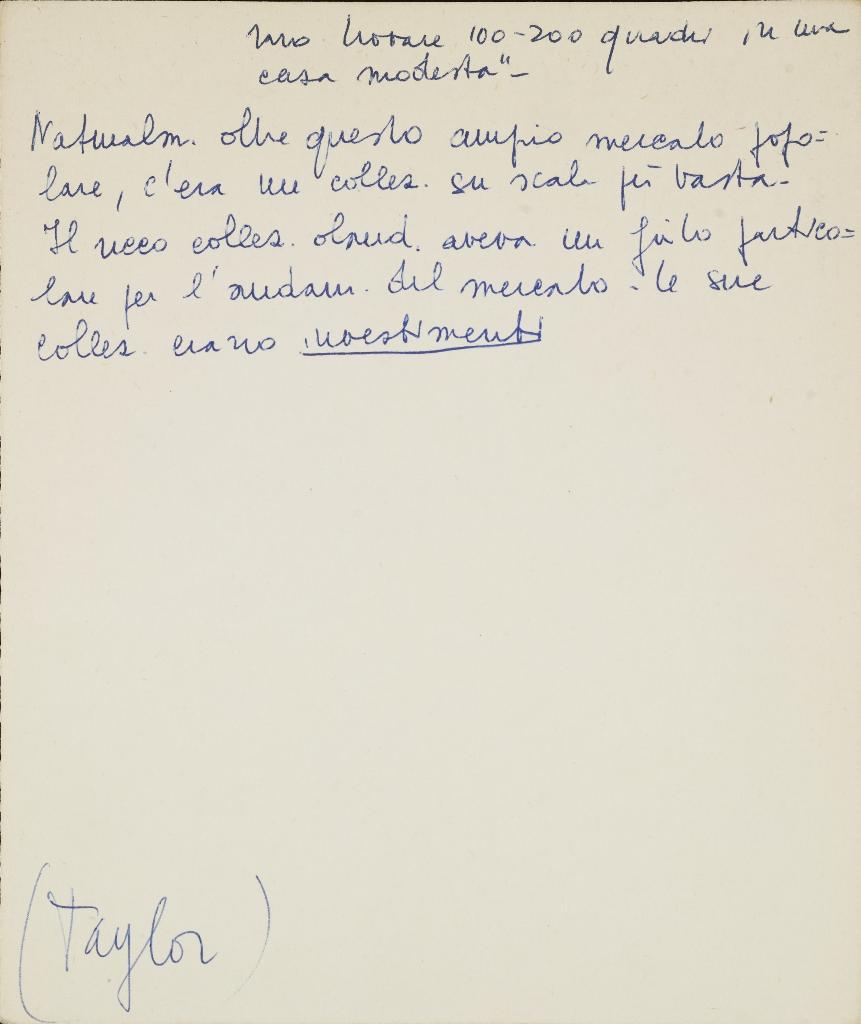 uno trovare 100-200 quadri in una
casa modesta" -
Naturalm. oltre questo ampio mercato popo=
lare, c'era un collez. su scala più vasta -
Il ricco colles. oland. aveva un fiuto partico=
lare per l'andam. del mercato - le sue
collez. erano investimenti
(Taylor)